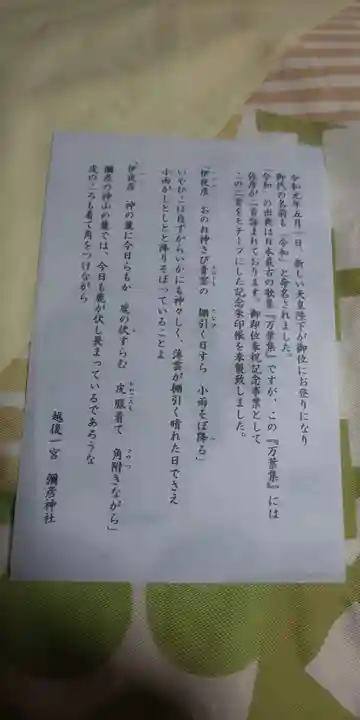 令和元年五月一日、新しい天皇陛下が御位にお登りになり
御代の名前も「令和」と命名されました。
「令和」の出典は日本最古の歌集『万葉集』ですが、この『万葉集』には
弥彦が二首詠まれております。御即位奉祝記念事業として
この二首をモチーフにした記念朱印帳を奉製致しました。
「伊夜彦 おのれ神さび青雲の 棚引く日すら 小雨そぼ降る」
いやひこは自ずからいかにも神々しく、薄雲が棚引く晴れた日でさえ
小雨がしとしとと降りそぼっていることよ
「伊夜彦 神の麓に今日らもか 鹿の伏すらむ 皮服着て 角附きながら」
彌彦の神山の麓では、今日も鹿が伏し畏まっているであろうな
皮のころも着て角をつけながら
越後一宮 彌彦神社